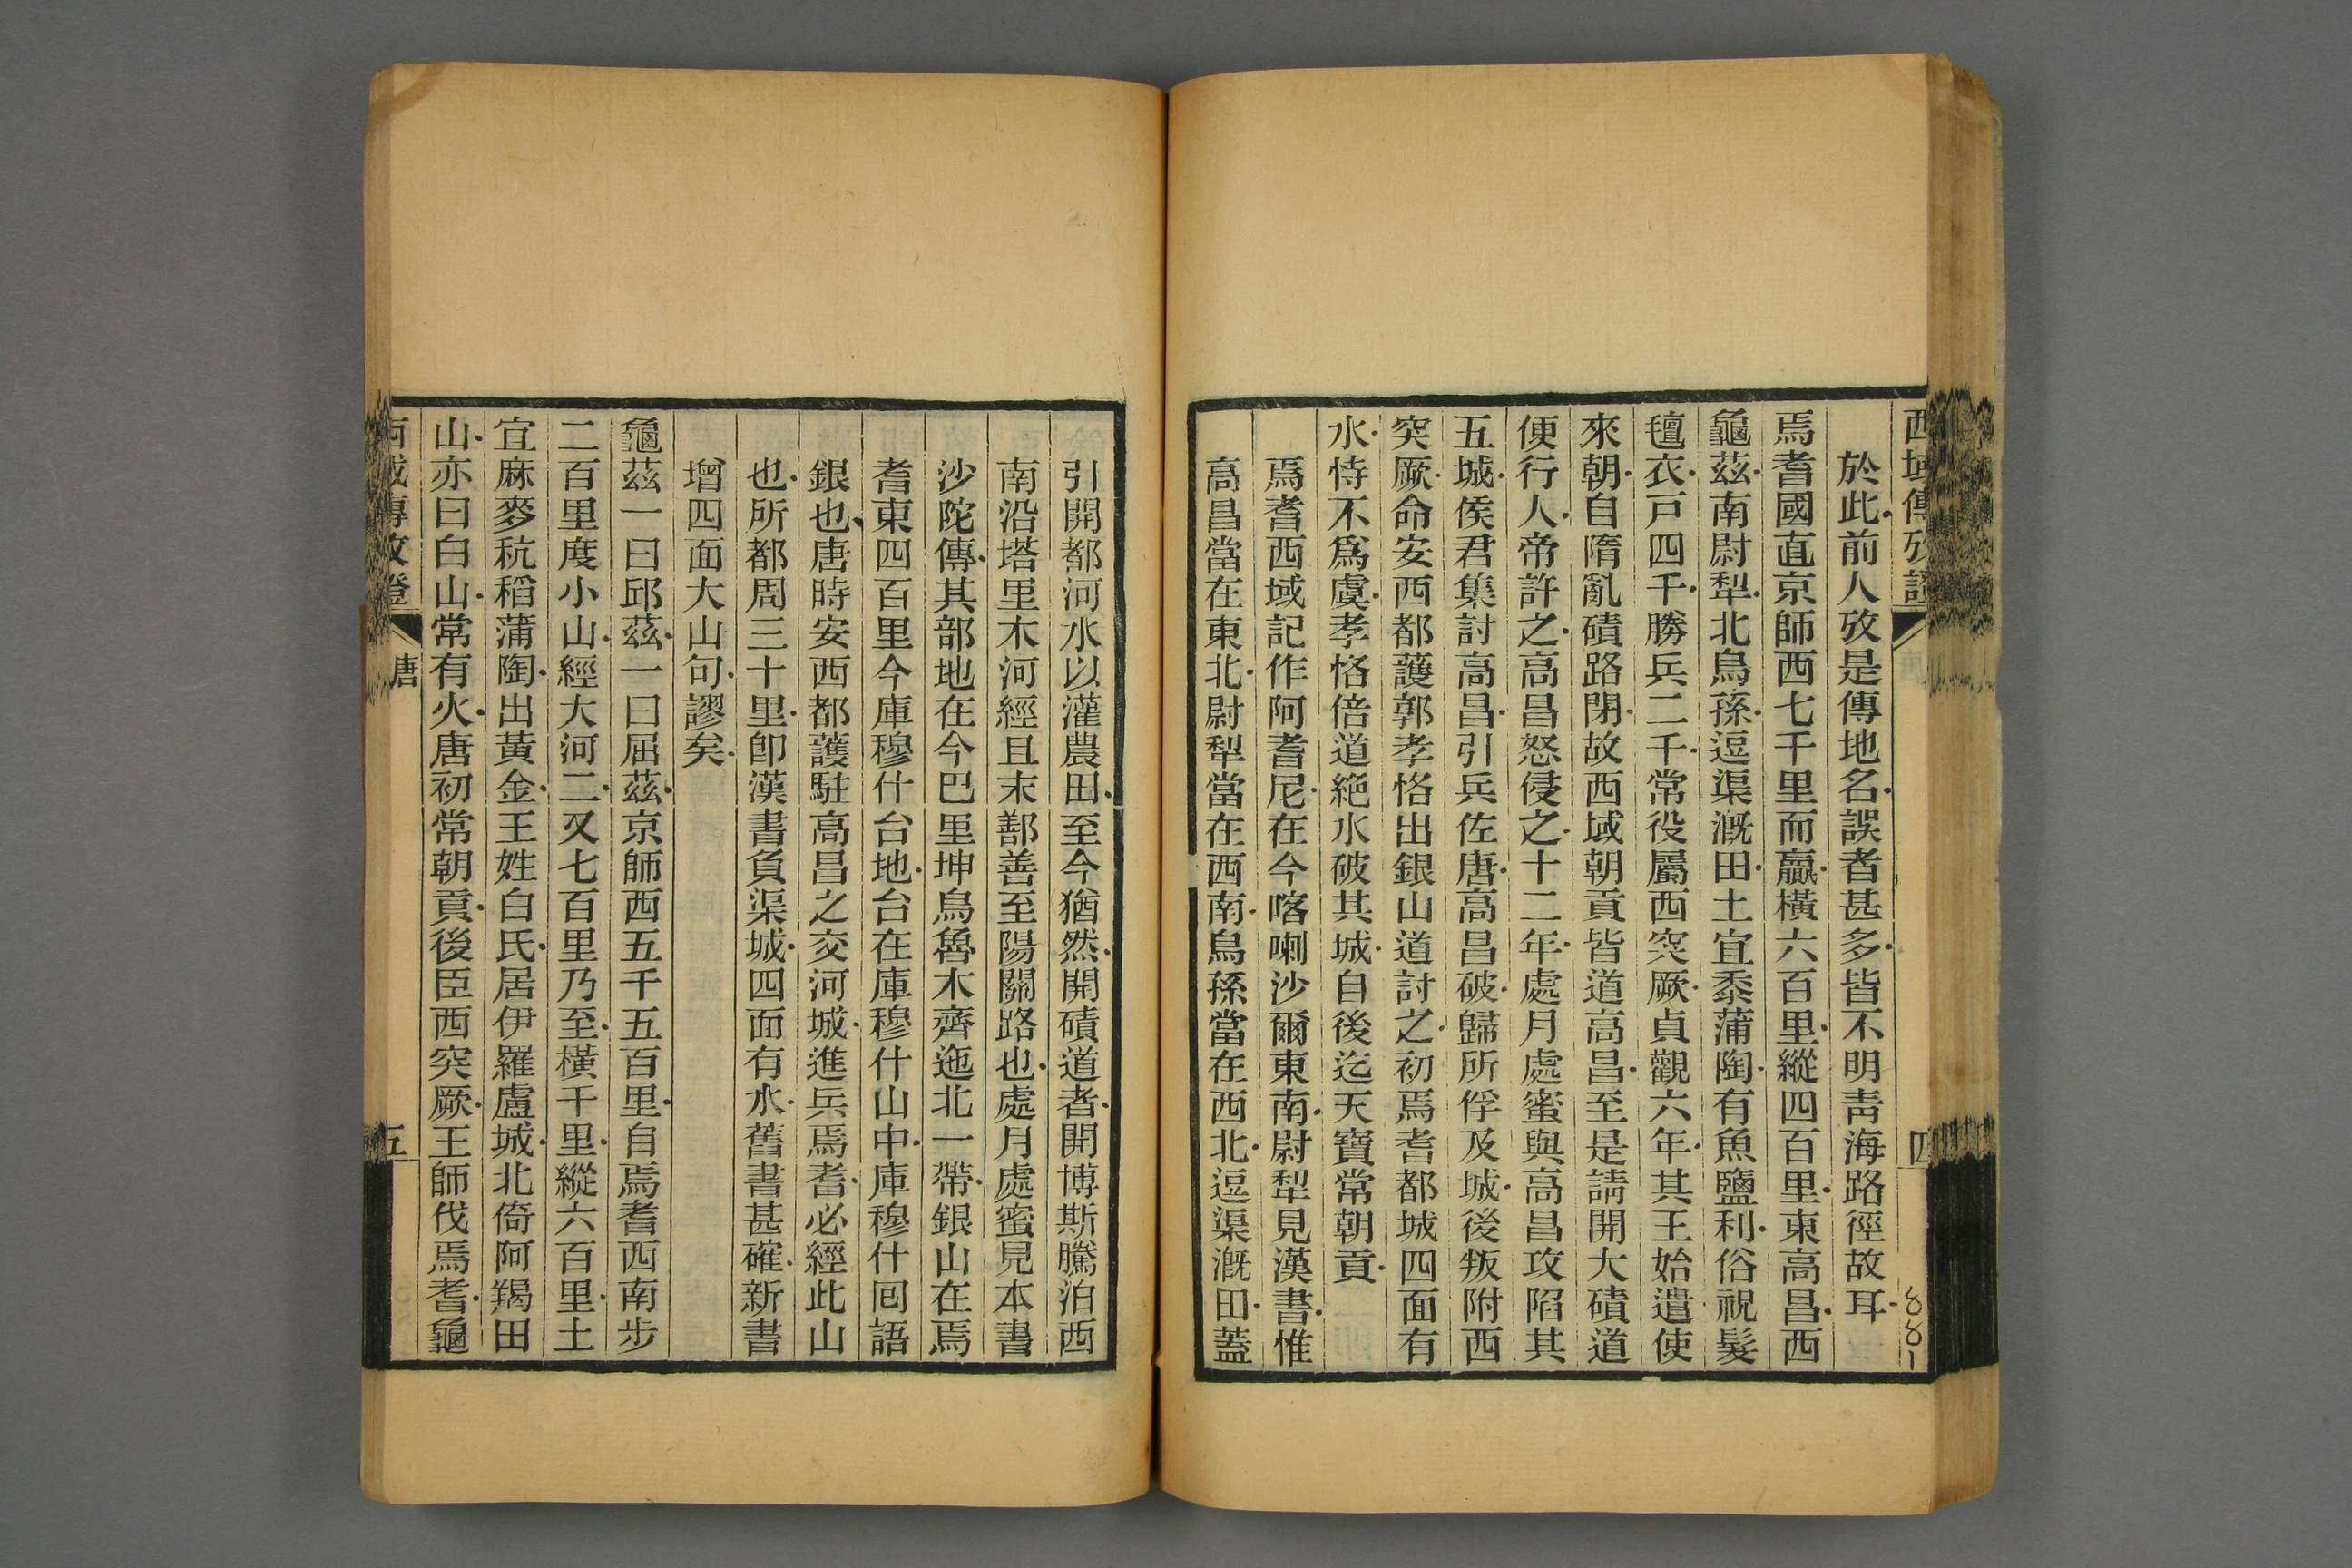 西域傳攷證
四
881
於此前人攷是傳地名誤者甚多皆不明靑海路徑故耳
焉耆國直京師西七千里而贏橫六百里縱四百里東高昌西
龜茲南尉犁北烏孫逗渠溉田土宜黍蒲陶有魚鹽利俗祝髮
氊衣戸四千勝兵二千常役屬西突厥貞觀六年其王始遣使
來朝自隋亂磧路閉故西域朝貢皆道高昌至是請開大磧道
便行人帝許之高昌怒侵之十二年處月處蜜與高昌攻陷其
五城侯君集討高昌引兵佐唐高昌破歸所俘及城後叛附西
突厥命安西都護郭孝恪出銀山道討之初焉耆都城四面有
水恃不爲虞孝恪倍道絶水破其城自後迄天寶常朝貢
焉耆西域記作阿耆尼在今喀喇沙爾東南尉犁見漢書惟
高昌當在東北尉犁當在西南烏孫當在西北逗渠溉田蓋
引開都河水以灌農田至今猶然開磧道者開博斯騰泊西
南沿塔里木河經且末鄯善至陽關路也處月處蜜見本書
沙陀傳其部地在今巴里坤烏魯木齊迤北一帶銀山在焉
耆東四百里今庫穆什台地台在庫穆什山中庫穆什回語
銀也唐時安西都護駐高昌之交河城進兵焉耆必經此山
也所都周三十里卽漢書負渠城四面有水舊書甚確新書
增四面大山句謬矣
龜茲一曰邱茲一曰屈茲京師西五千五百里自焉耆西南步
二百里度小山經大河二又七百里乃至橫千里縱六百里土
宜麻麥秔稻蒲陶出黃金王姓白氏居伊羅盧城北倚阿羯田
山亦曰白山常有火唐初常朝貢後臣西突厥王師伐焉耆龜
西域傳攷證
唐
五